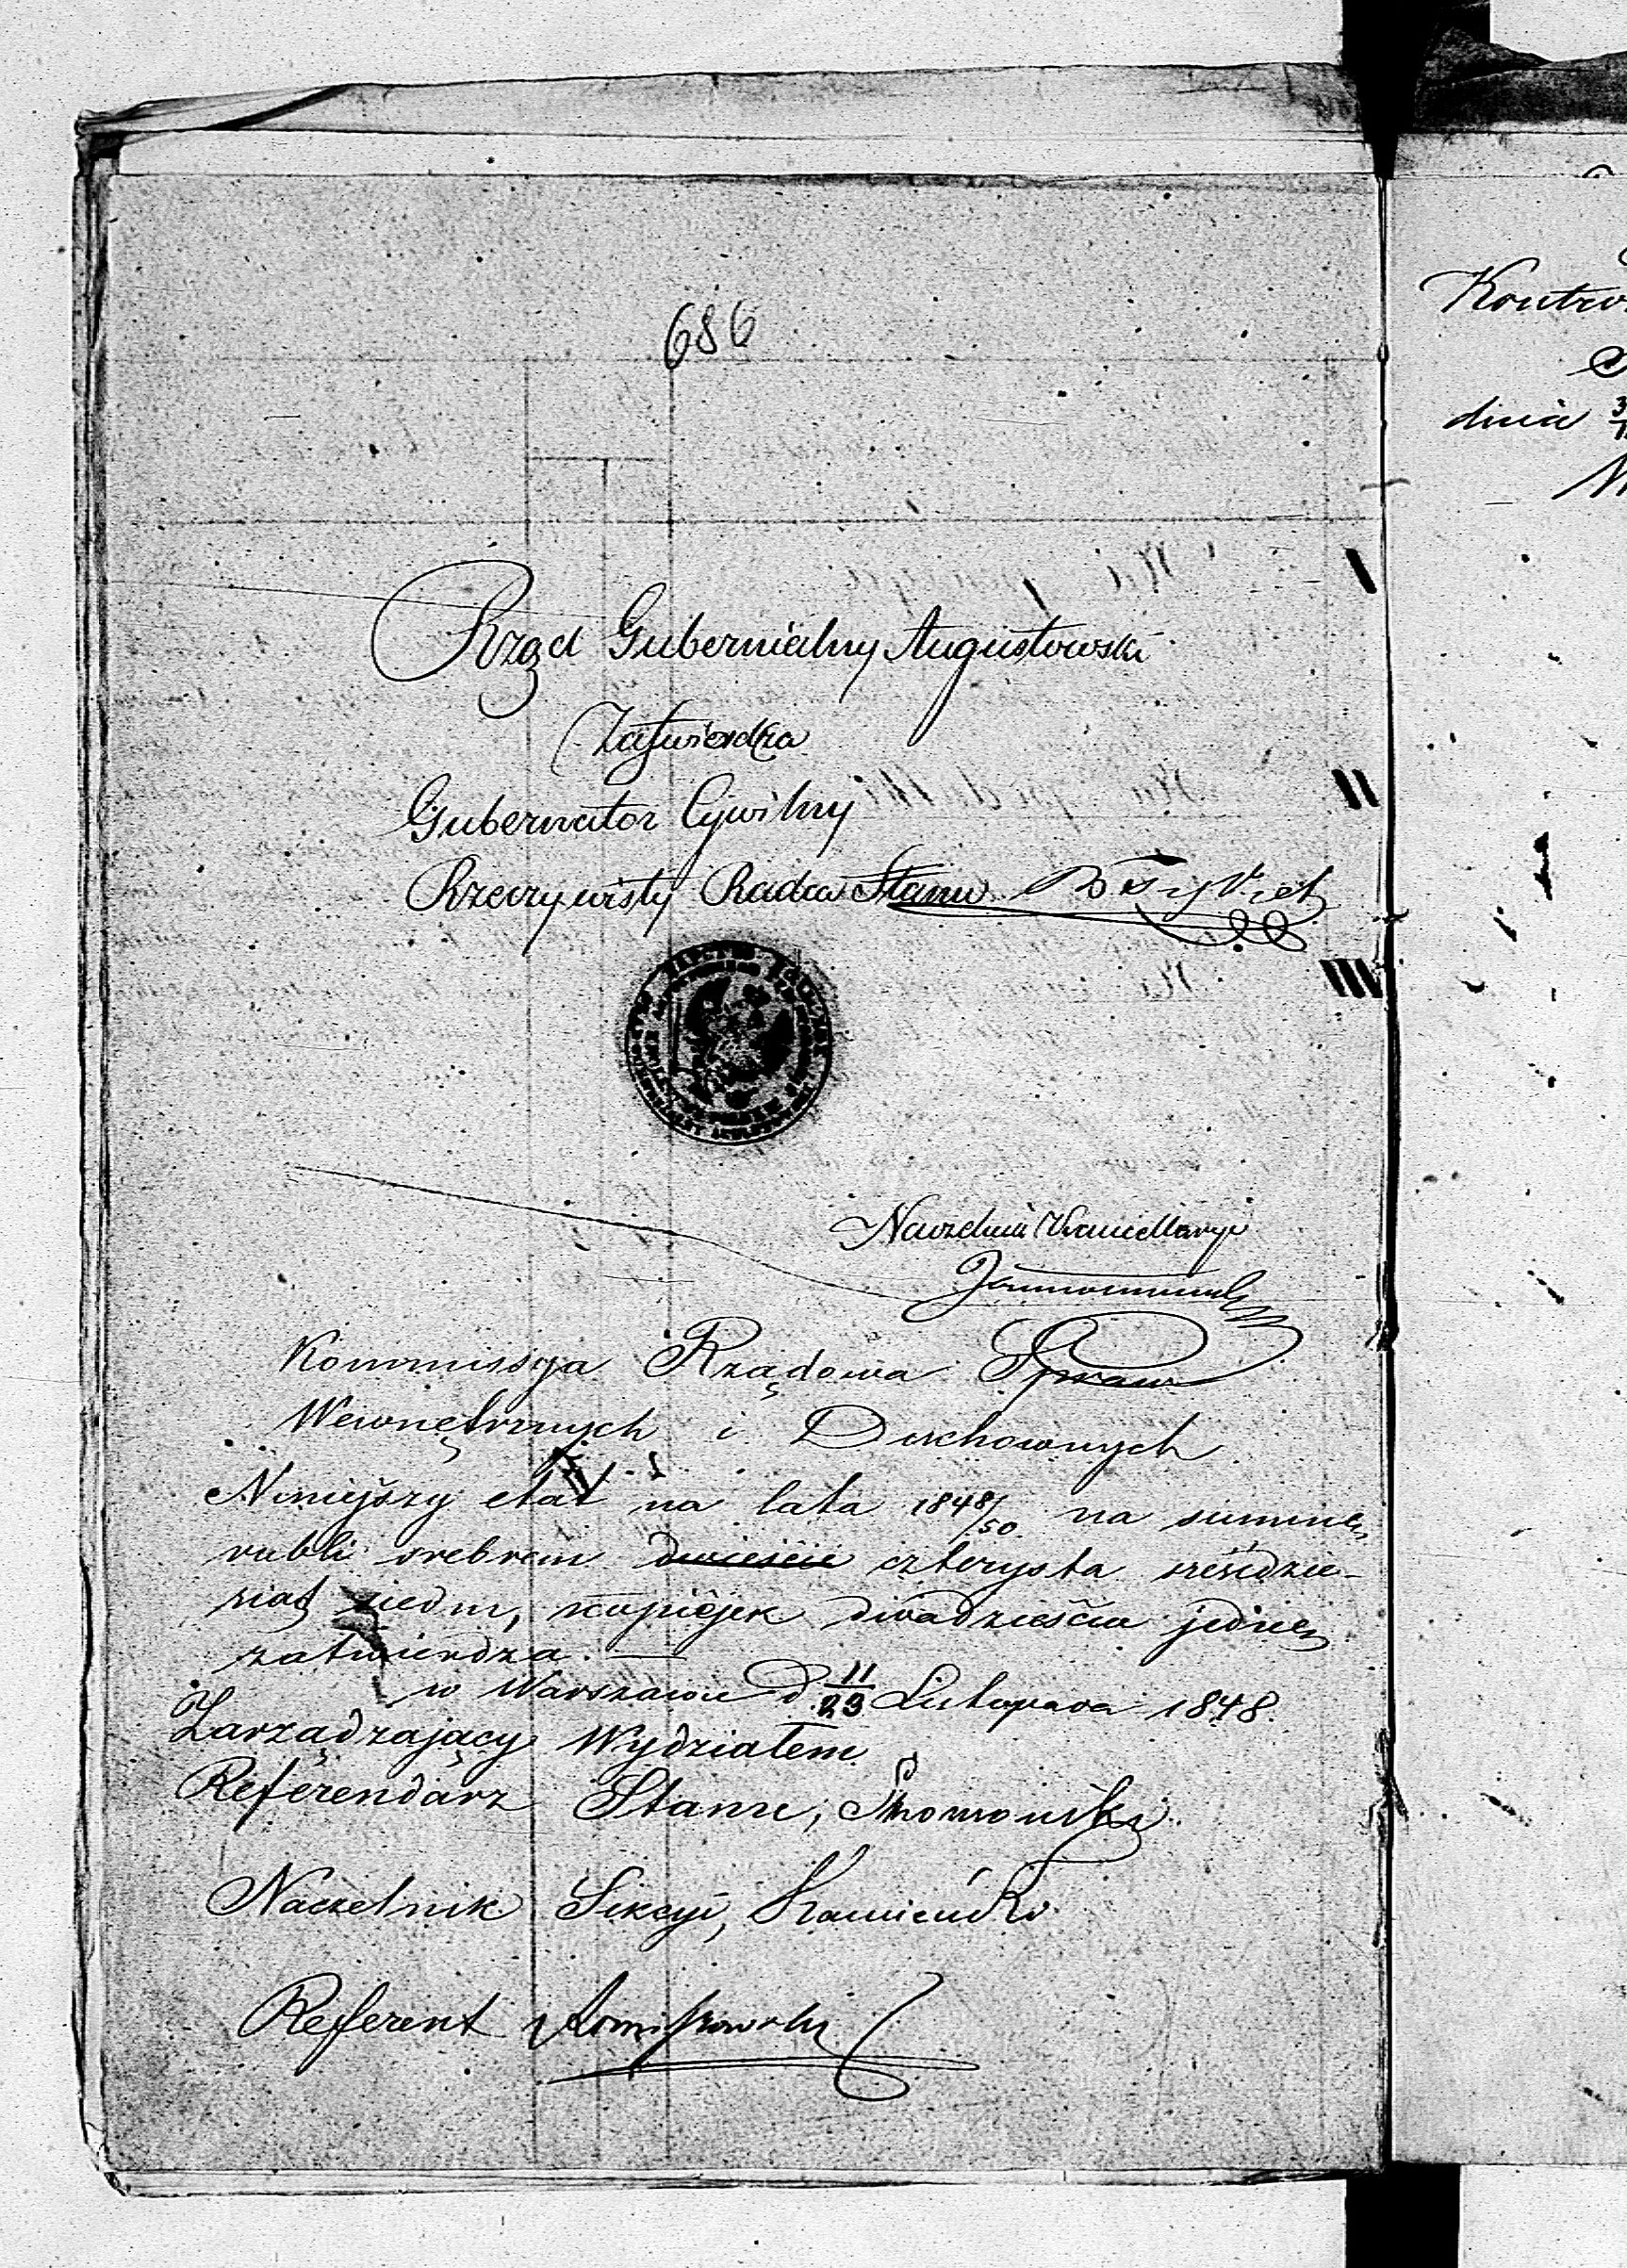 686
Rząd Gubernialny Augustowski
Zatwierdza
Gubernator Cywilny
Rzeczywisty Radca Stanu
Naczelnik Kancellaryi
Kommissya Rządowa Spraw
Wewnętrznych i Duchownych
Niniejszy etat na lata 1848/50 na summę
rubli srebrem dwieście czterysta sześdzie-
siąt siedm, kopiejek dwadzieścia jednę
zatwierdza. —
w Warszawie d 11/23 Listopada 1848.
Zarządzający Wydziałem
Referendarz Stanu,
Naczelnik Sekcyi,
Referent
Kontro
dnia
I
II
III